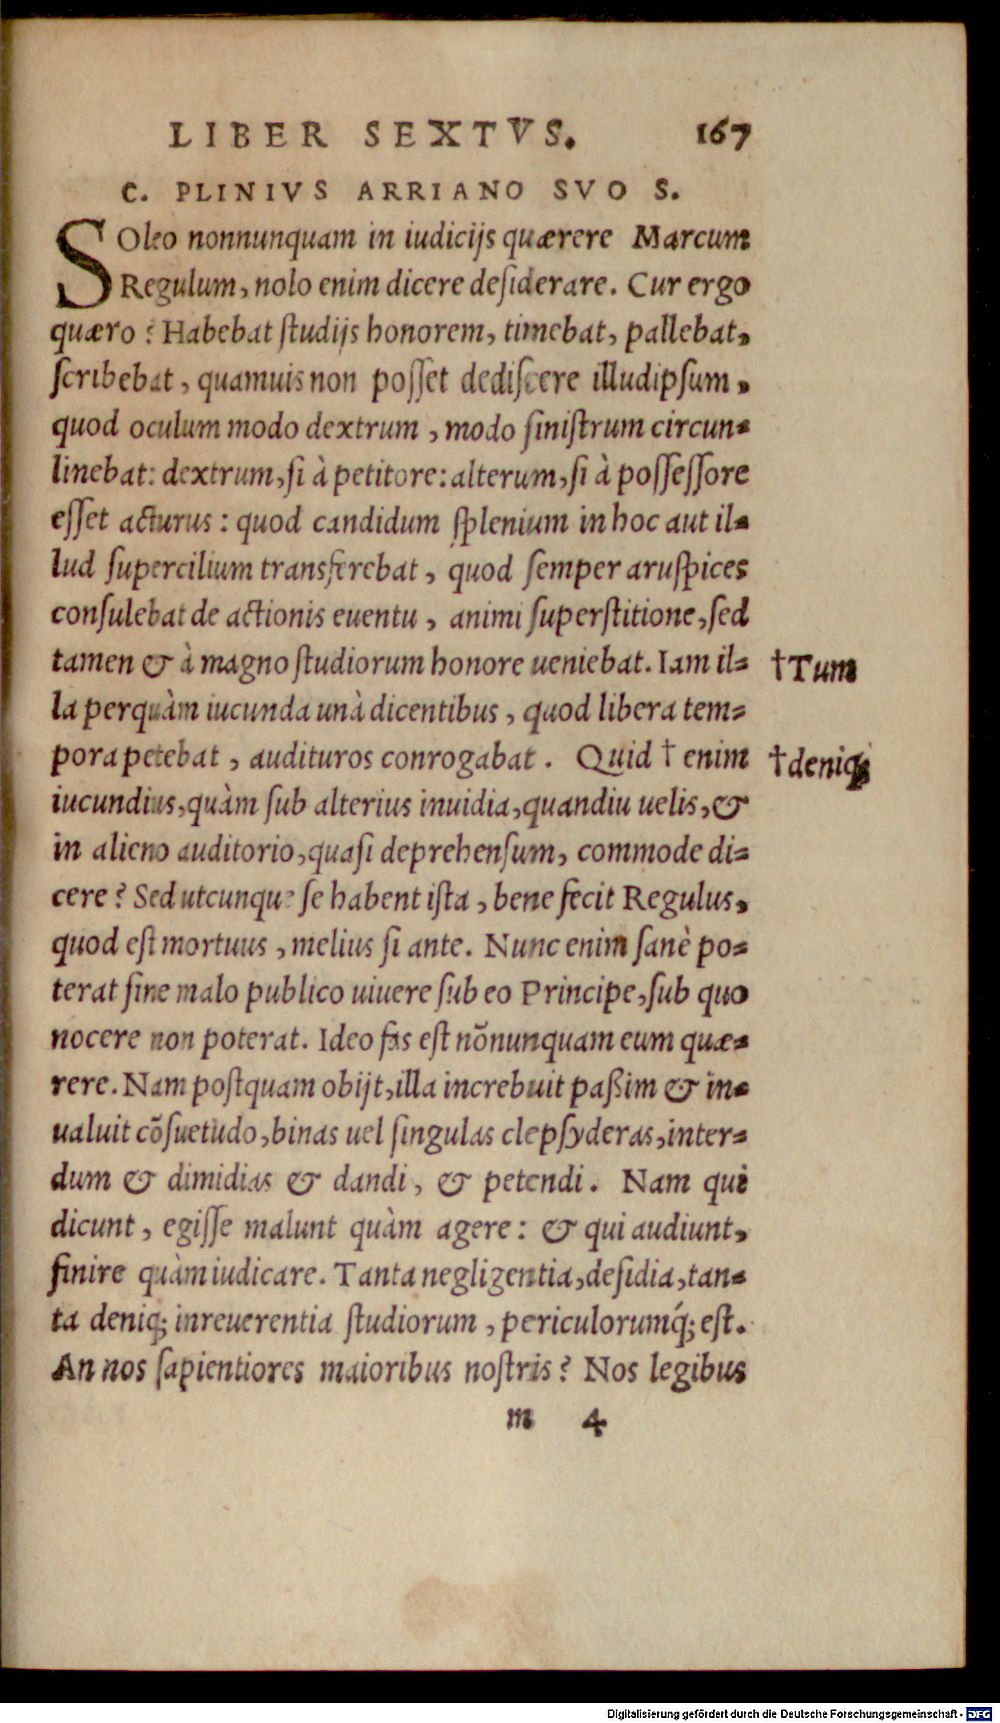 LIBER SEXTVS. 167
C. PLINIVS ARRIANO SVO S.
SOleo nonnunquam in iudicijs quærere Marcum
Regulum, nolo enim dicere desiderare. Cur ergo
quæro? Habebat studijs honorem, timebat, pallebat,
scribebat, quamuis non posset dediscere illud ipsum,
quod oculum modo dextrum, modo sinistrum circun-
linebat: dextrum, si à petitore: alterum, si à possessore
esset acturus: quod candidum splenium in hoc aut il-
lud supercilium transferebat, quod semper aruspices
consulebat de actionis euentu, animi superstitione, sed
tamen & à magno studiorum honore ueniebat. Iam il- †Tum
la perquàm iucunda unà dicentibus, quod libera tem-
pora petebat, audituros conrogabat. Quid † enim †deniq;
iucundius, quàm sub alterius inuidia, quandiu uelis, &
in alieno auditorio, quasi deprehensum, commode di-
cere? Sed utcunque se habent ista, bene fecit Regulus,
quod est mortuus, melius si ante. Nunc enim sanè po-
terat sine malo publico uiuere sub eo Principe, sub quo
nocere non poterat. Ideo fas est nõnunquam eum quæ-
rere. Nam postquam obijt, illa increbuit paßim & in-
ualuit cõsuetudo, binas uel singulas clepsyderas, inter-
dum & dimidias & dandi, & petendi. Nam qui
dicunt, egisse malunt quàm agere: & qui audiunt,
finire quàm iudicare. Tanta negligentia, desidia, tan-
ta deniq; inreuerentia studiorum, periculorumq́; est.
An nos sapientiores maioribus nostris? Nos legibus
m 4
Digitalisierung gefördert durch die Deutsche Forschungsgemeinschaft - DFG